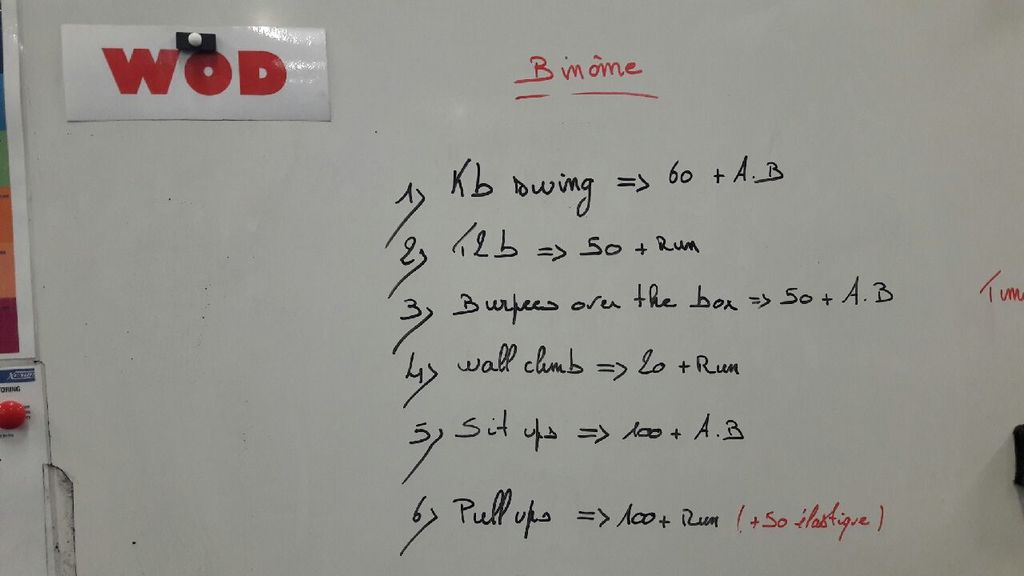 WOD
Binôme
1) Kb swing => 60 + A.B
2) T2b => 50 + Run
3) Burpees over the box => 50 + A.B
4) Wall climb => 20 + Run
5) Sit ups => 100 + A.B
6) Pull ups => 100 + Run (+50 élastique)